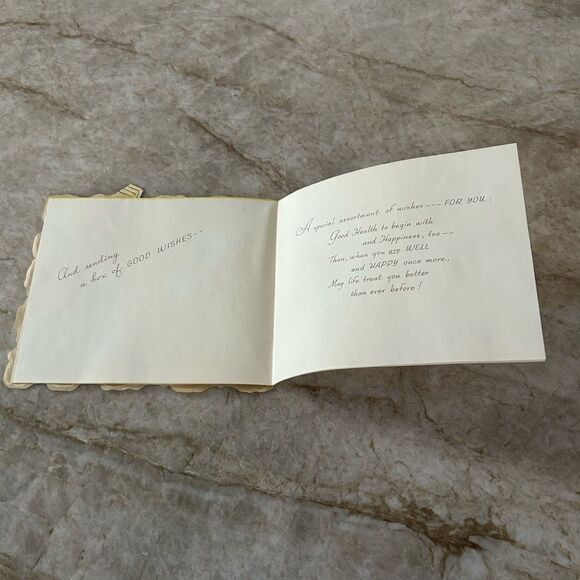 And sending
a box of GOOD WISHES--
A special assortment of wishes --- FOR YOU:
Good Health to begin with
and Happiness, too --
Then, when you are WELL
and HAPPY once more,
May life treat you better
than ever before!